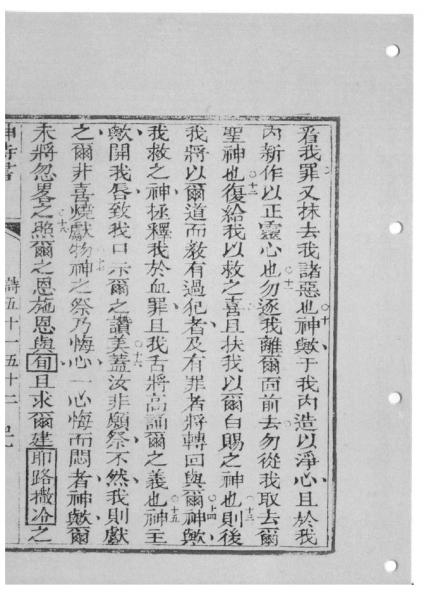 看我罪又抹去我諸惡也○十神歟于我內造以淨心且於我
內新作以正靈心也○十一勿逐我離爾面前去勿從我取去爾
聖神也○十二復給我以救之喜且扶我以爾白賜之神也○十三則後
我將以爾道而敎有過犯者及有罪者將轉回與爾○十四神歟
我救之神拯釋我於血罪且我舌將高誦爾之義也○十五神主
歟開我唇致我口示爾之讚美○十六蓋汝非願祭不然我則獻
之爾非喜燒獻物神之祭乃悔心一心悔而悶者神歟爾
未將忽畧之○十八照爾之恩施恩與旬且求爾建耶路撒冷之
詩五十一五十二